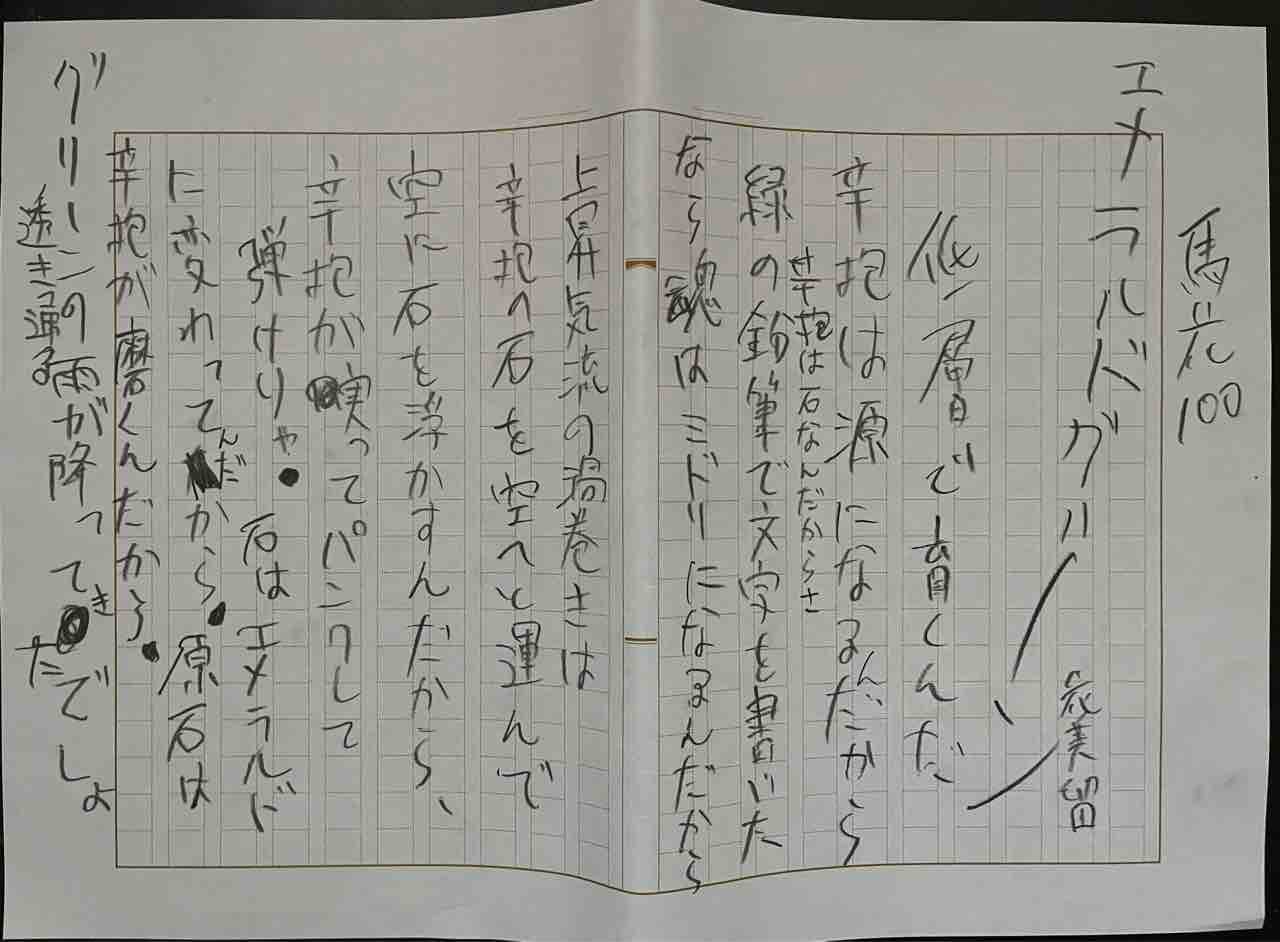 馬花100
エメラルドグリーン
花美留
低層で育くんだ
辛抱は源になるんだから
辛抱は石なんだからさ
緑の鉛筆で文字を書いた
なら魂はミドリになるんだから
上昇気流の渦巻きは
辛抱の石を空へと運んで
空に石を浮かすんだから、
辛抱が実ってパンクして
弾けりゃ。石はエメラルド
に変わってんだから。原石は
辛抱が磨くんだから。
グリーンの雨が降ってきたでしょ
透き通る